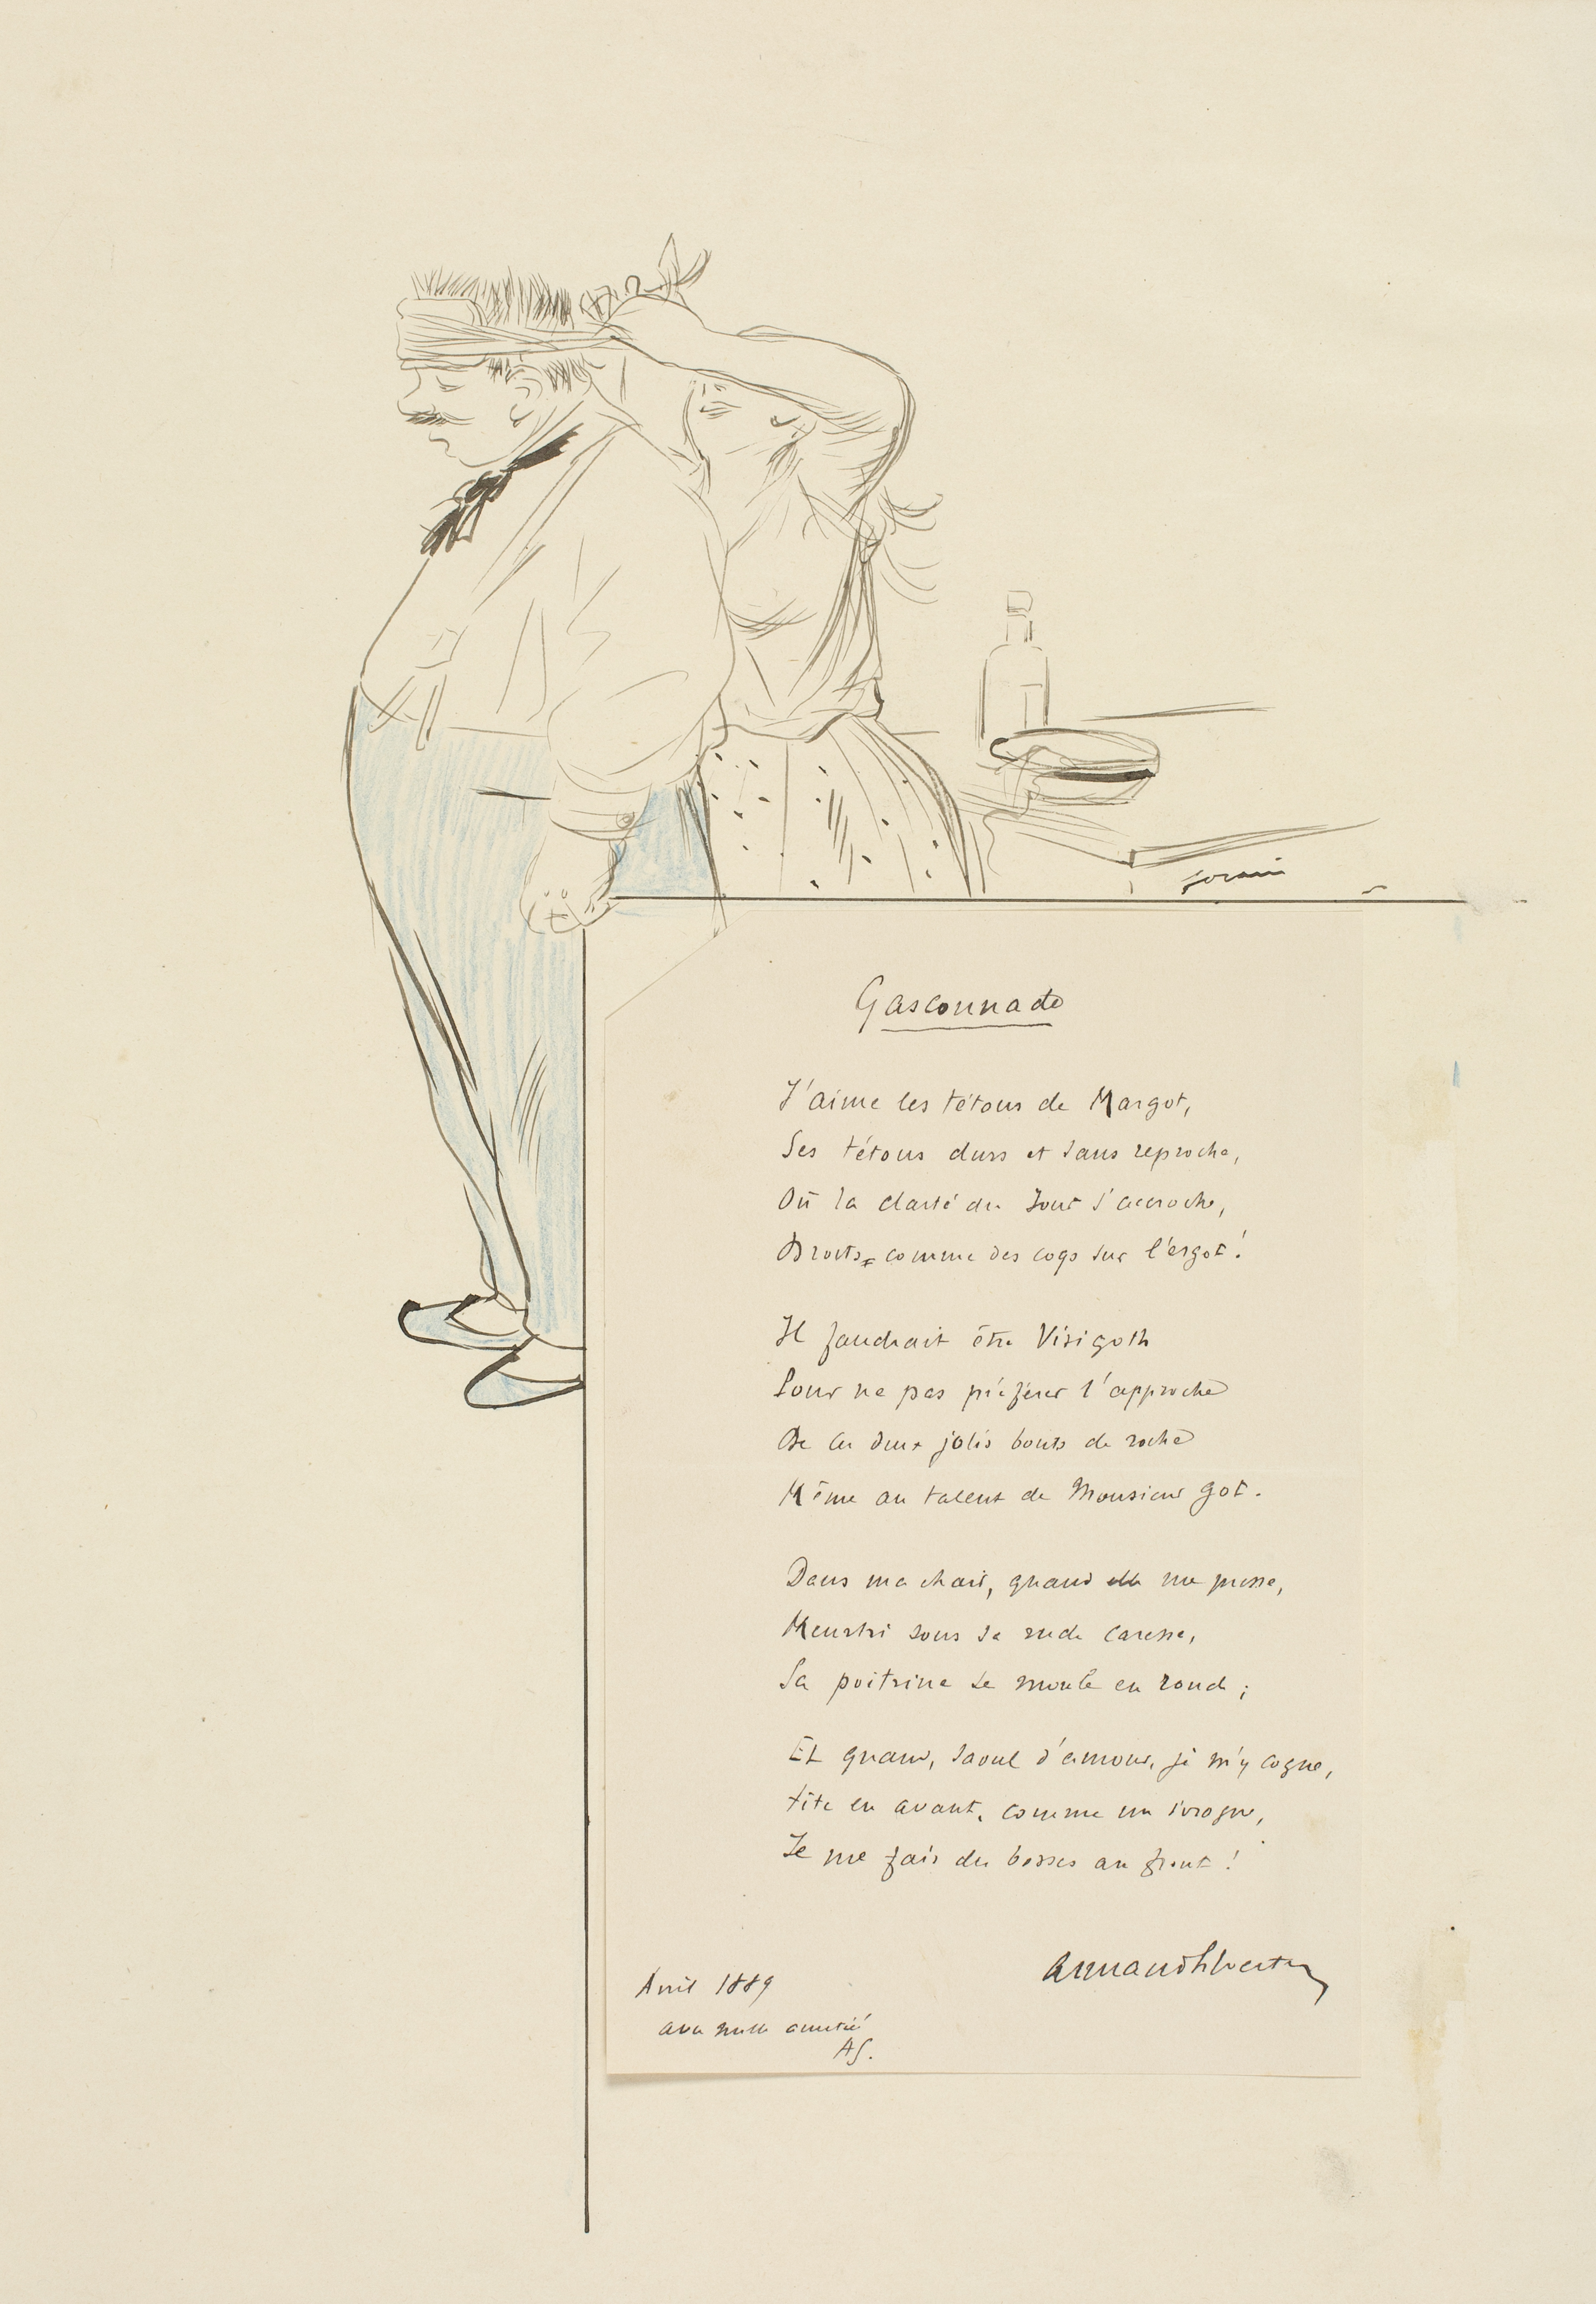 forain
Gasconnade
J'aime les tétons de Margot,
Ses tétons durs et sans reproche,
Où la clarté du Jour s'accroche,
Droits comme des coqs sur l'ergot !
Il faudrait être Visigoth
Pour ne pas préférer l'approche
De ces deux jolis bouts de roche
Même au talent de Monsieur Got.
Dans ma chair, quand elle me presse,
Meurtri sous sa rude caresse,
Sa poitrine se moule en rond ;
Et quand, saoul d'amour, je m'y cogne,
tête en avant, comme un ivrogne,
Je me fais des bosses au front !
Armand Silvestre
Avril 1889
avec mille amitié
AS.